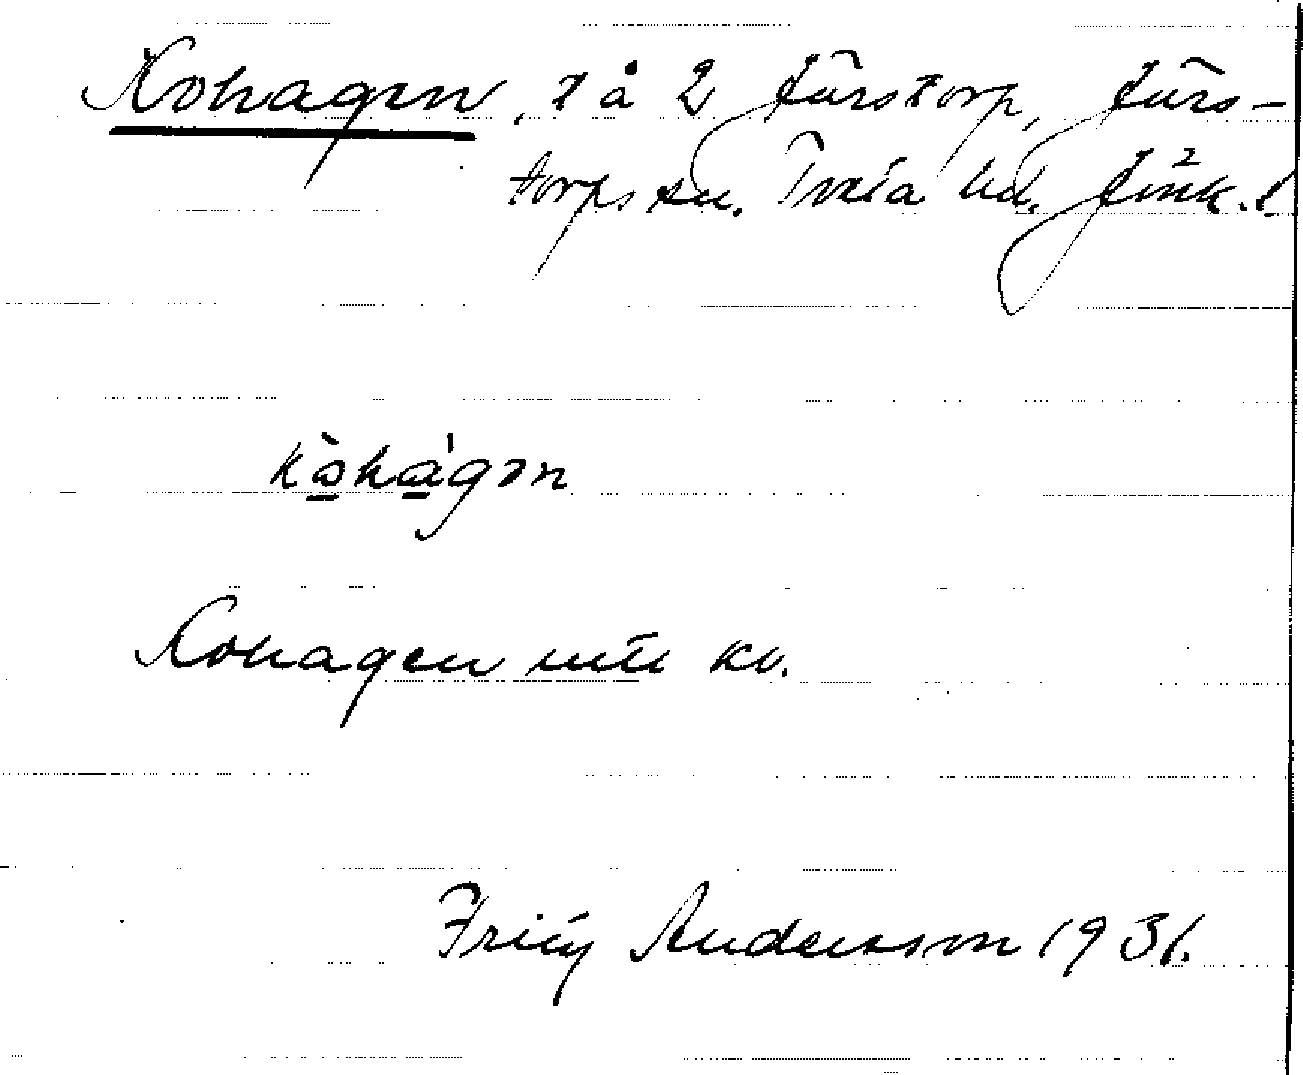 Kohagen, t å 2 Jürstorp, Jürs-
torps sn. Tveta hd. Jönk. l.
kòhágən
Kohagen mtl kv.
Andersson 1931.